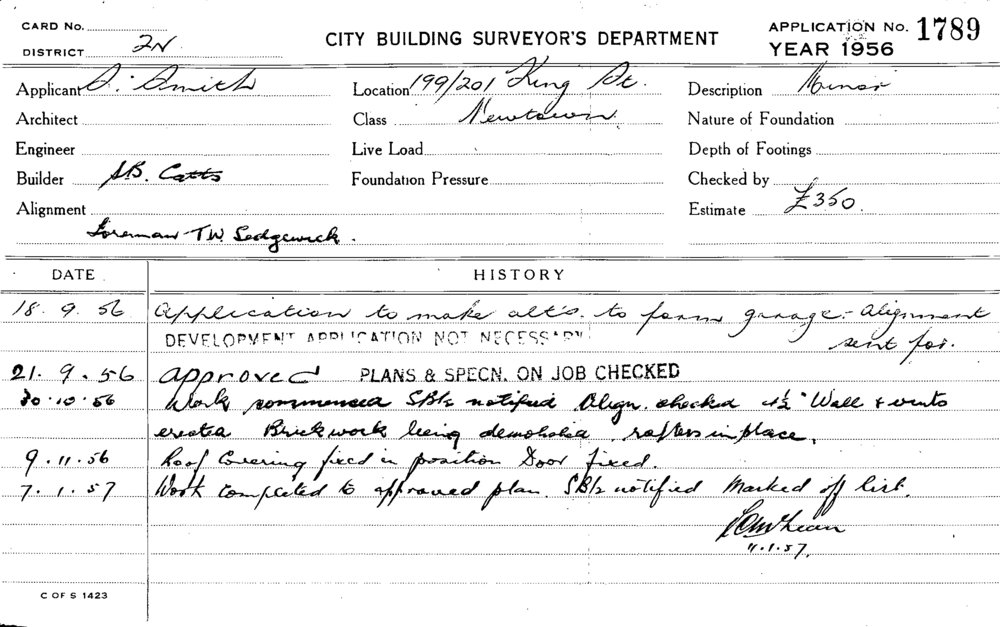 CARD No.
DISTRICT 2N
CITY BUILDING SURVEYOR'S DEPARTMENT
APPLICATION No. 1789
YEAR 1956
Applicant A. Smith Location 199/201 King St. Description Minor
Architect Class Newtown Nature of Foundation
Engineer Live Load Depth of Footings
Builder S.B. Catts Foundation Pressure Checked by
Alignment Estimate £350.
Foreman T.W. Sedgewick.
DATE HISTORY
18. 9. 56 Application to make alt's. to form garage - Alignment
DEVELOPMENT APPLICATION NOT NECESSARY sent for.
21. 9. 56 Approved PLANS & SPECN. ON JOB CHECKED
30.10.56 Work commenced notified Align. checked 4½" Wall &
erected Brickwork being demolished. rafters in place.
9.11.56 Roof Covering fixed in position Door fixed.
7.1.57 Work completed to approved plan. notified Marked off list.
11.1.57.
C OF S 1423